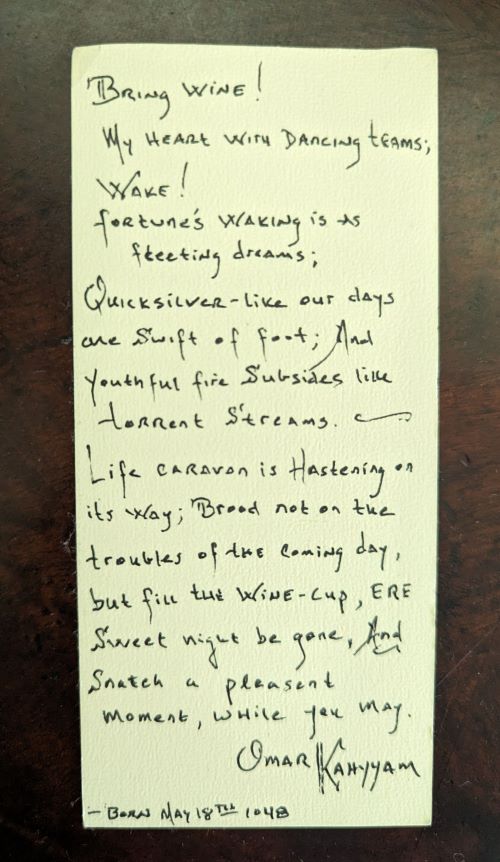 Bring Wine!
My Heart with Dancing teams;
Wake!
fortune's waking is as
fleeting dreams;
Quicksilver-like our days
are Swift of foot; And
Youthful fire Subsides like
torrent Streams.
Life caravan is Hastening on
its Way; Brood not on the
troubles of the coming day,
but fill the Wine-Cup, ERE
Sweet night be gone, And
Snatch a pleasent
Moment, while you may.
Omar Kahyyam
- Born May 18th 1048